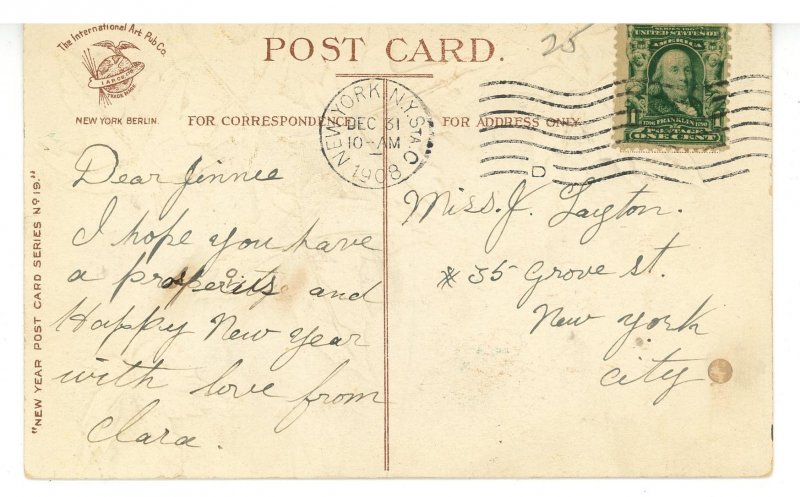 The International Art Pub Co.
TRADE MARK
NEW YORK BERLIN.
POST CARD.
25
SERIES 1902
UNITED STATES OF
AMERICA
1706 FRANKLIN 1790
POSTAGE
1 ONE CENT 1
FOR CORRESPONDENCE
FOR ADDRESS ONLY.
NEW YORK, N.Y. STA. C
DEC 31
10-AM
1908
D
Dear Jinnee
I hope you have
a prosperits and
Happy New Year
with love from
Clara.
Miss. J. Layton.
# 35 Grove st.
New York
City
"NEW YEAR POST CARD SERIES No 19."